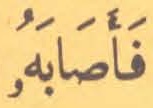 فَأَصَابَهُ,